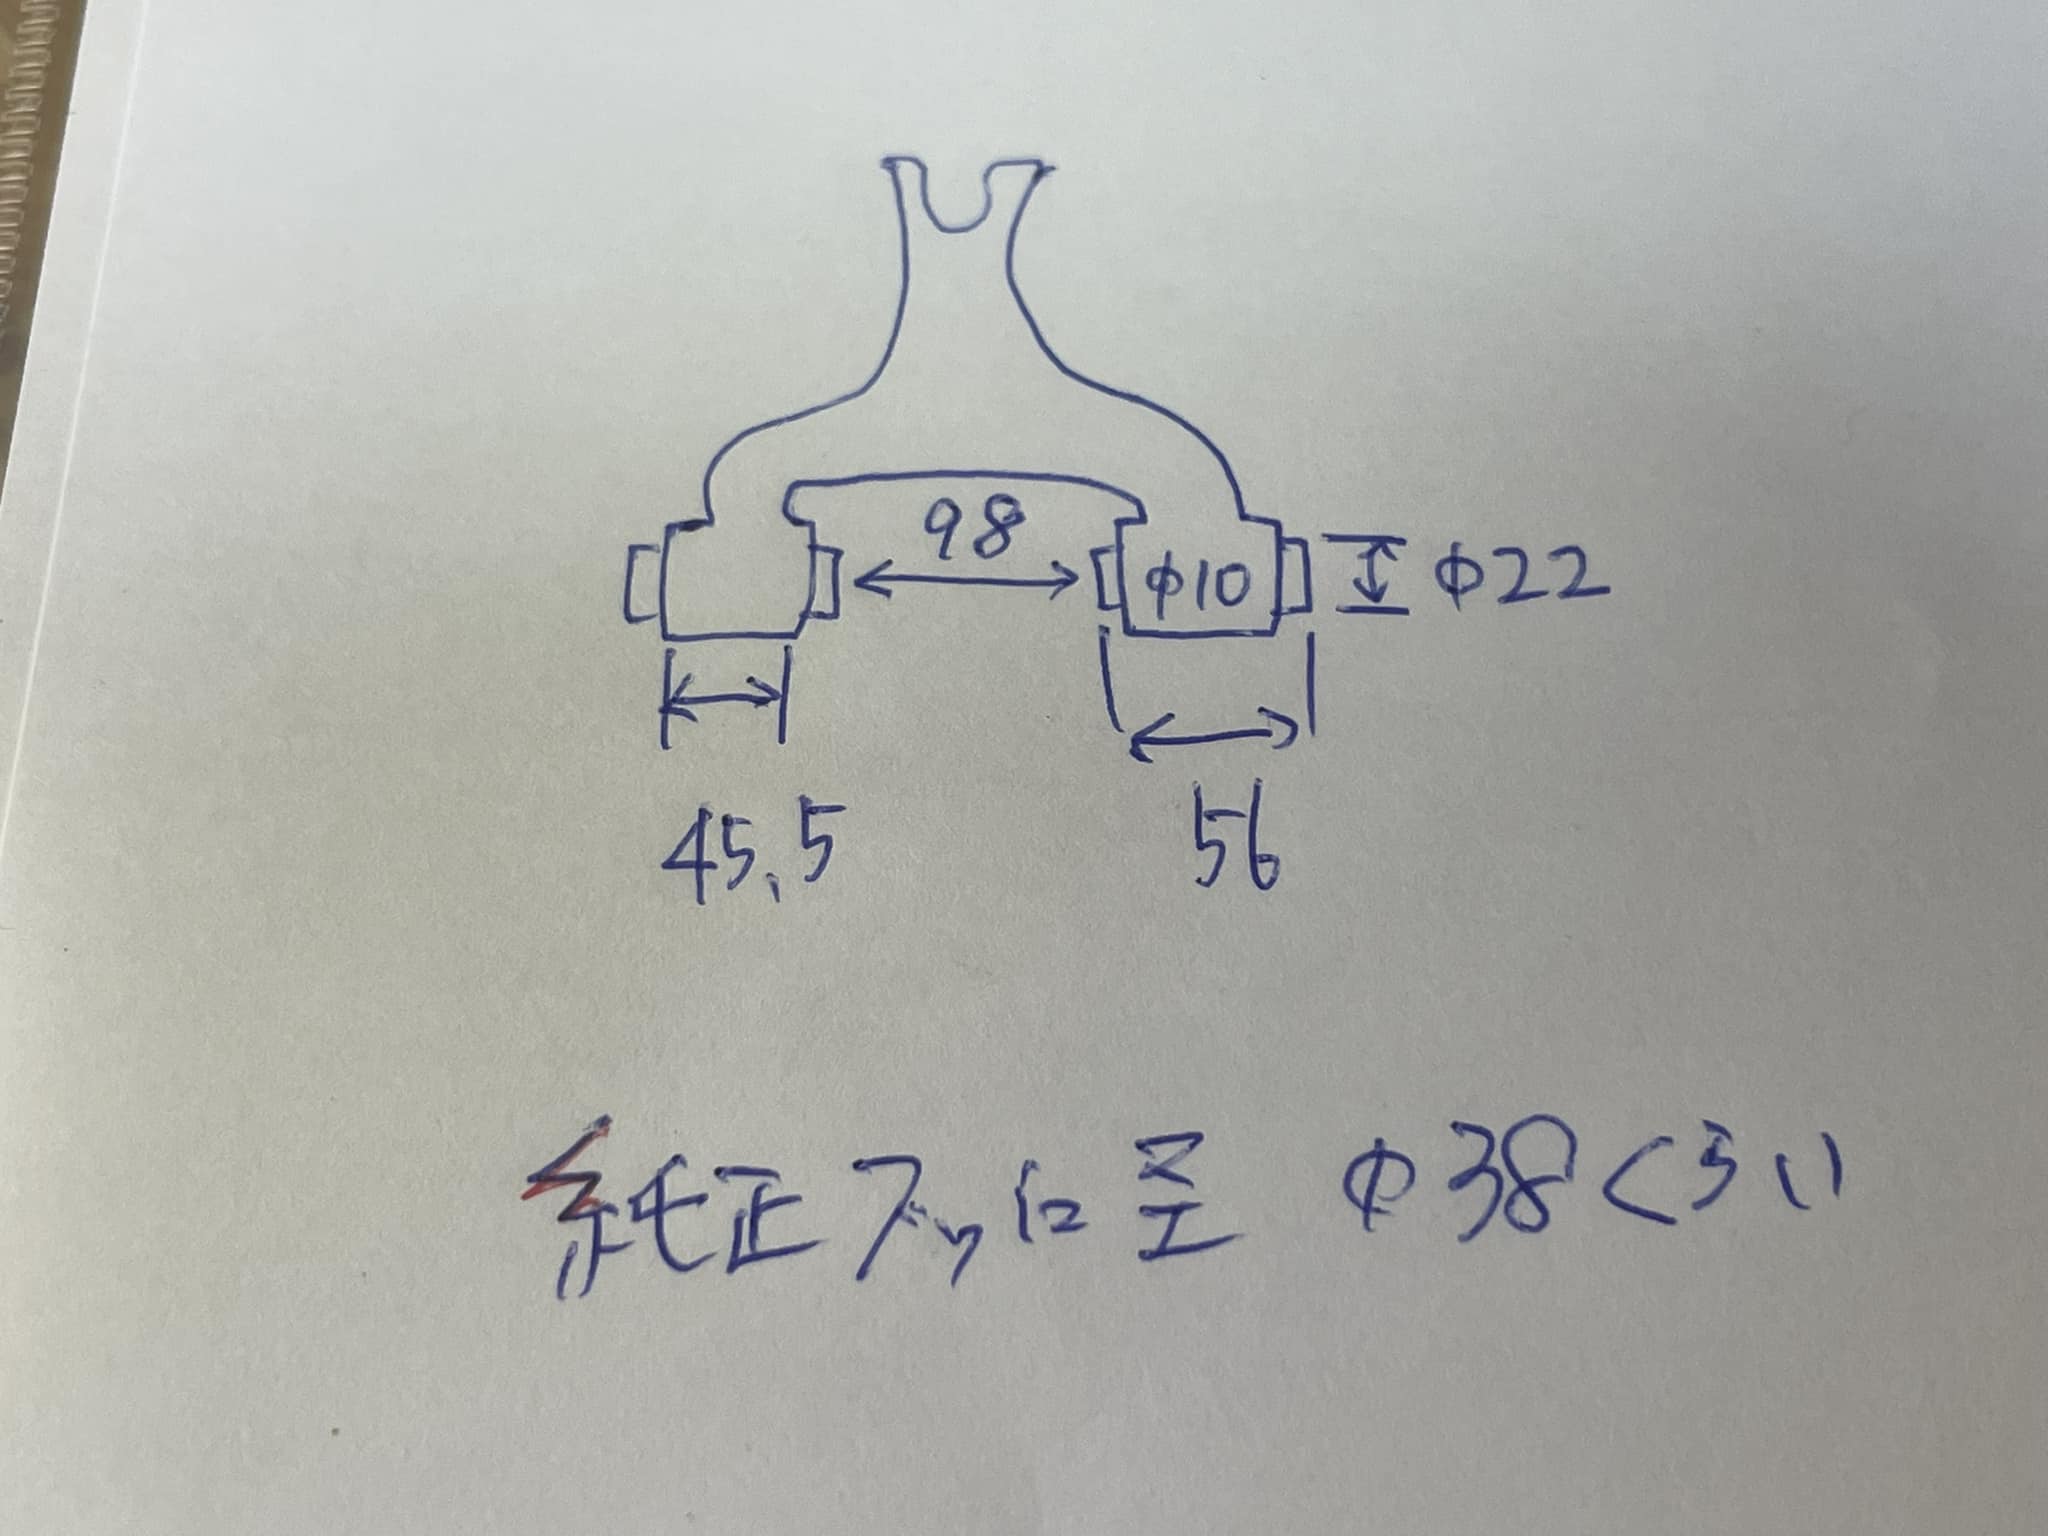 98
φ10
φ22
45.5
56
純正 アッパー 径 φ38くらい